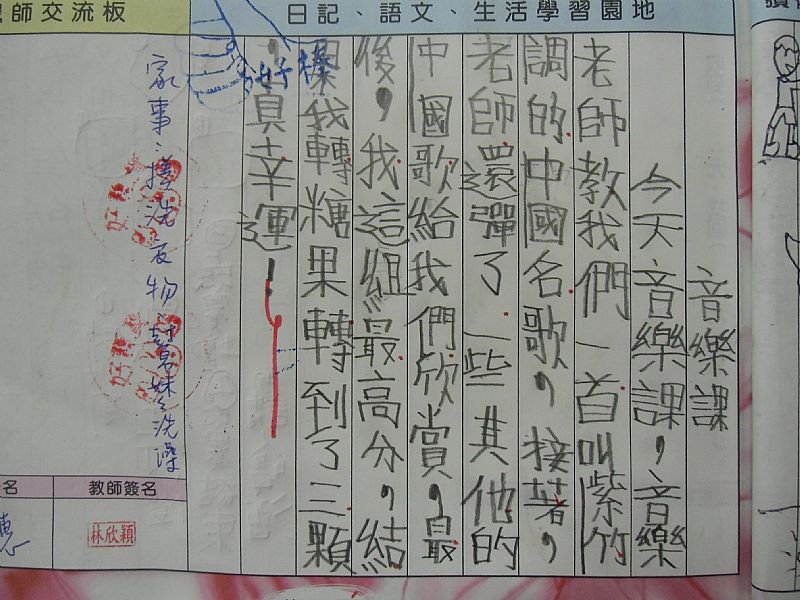 日記、語文、生活學習園地
音樂課
今天音樂課，音樂
老師教我們一首叫紫竹
調的中國名歌，接著，
老師還彈了一些其他的
中國歌給我們欣賞，最
後，我這組最高分，結
果我轉糖果轉到了三顆
，真幸運！
好棒
師交流板
家事：搓洗衣物、幫妹妹洗澡
教師簽名
林欣穎
名